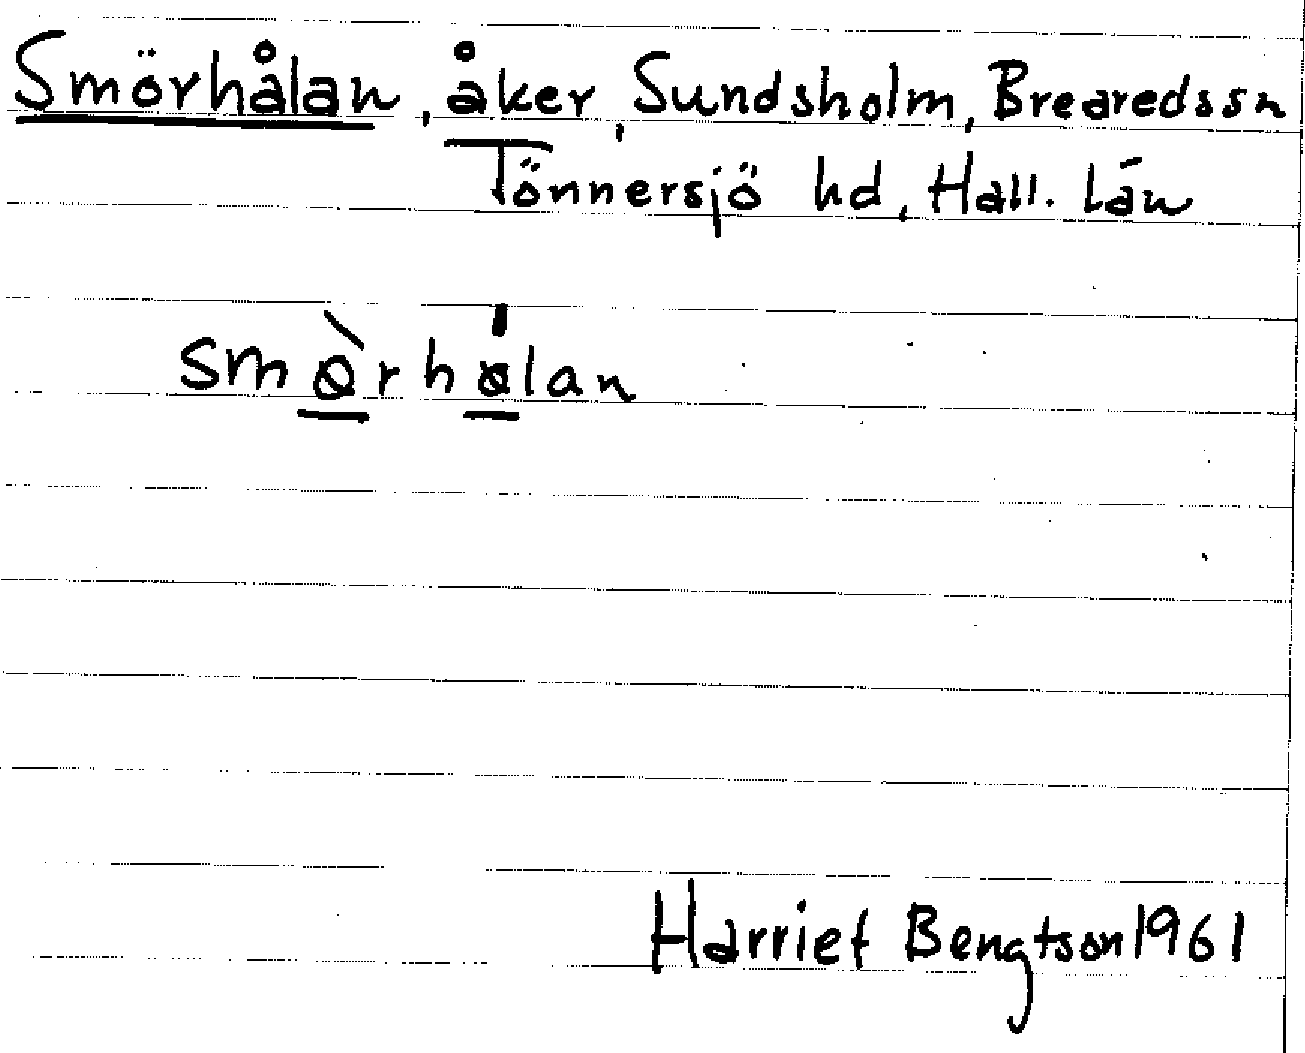 Smörhålan, åker, Sundsholm, Brearedssn
Tönnersjö hd, Hall. län
smø̀rhålan
Harriet Bengtson 1961